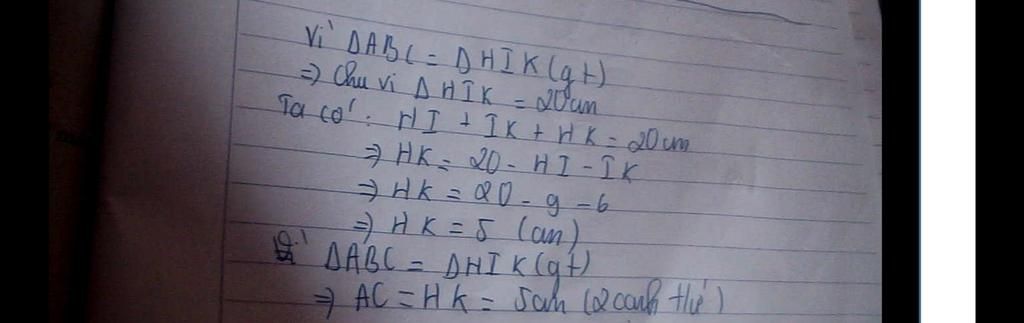 Vì ΔABC = ΔHIK (gt)
⇒ Chu vi ΔHIK = 20cm
Ta có: HI + IK + HK = 20cm
⇒ HK = 20 - HI - IK
⇒ HK = 20 - 9 - 6
⇒ HK = 5 (cm)
ΔABC = ΔHIK (gt)
⇒ AC = HK = 5cm (2 cạnh t/ứ)